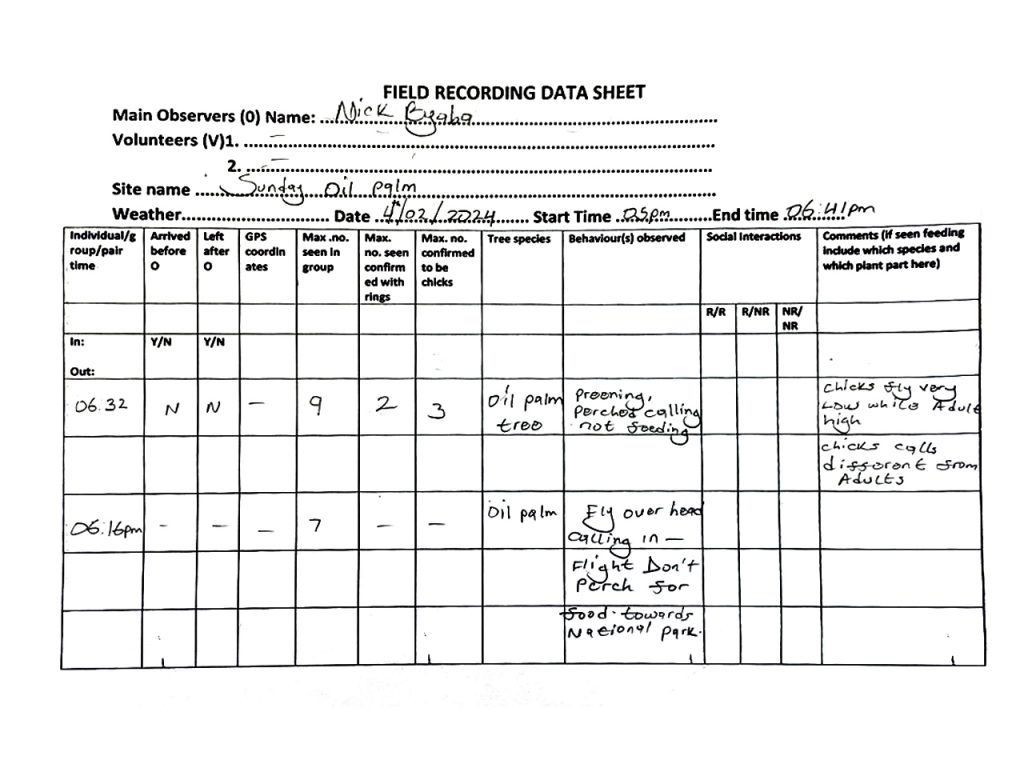 FIELD RECORDING DATA SHEET
Main Observers (0) Name: ...Nick Byaba...
Volunteers (V)1. ...–...
2. ...–...
Site name ...Sunday Oil palm...
Weather... Date ..4th/02/2024... Start Time .05pm...End time .06:41pm
Individual/g Arrived Left GPS Max .no. Max. Max. no. Tree species Behaviour(s) observed Social Interactions Comments (if seen feeding
roup/pair before after coordin seen in no. seen confirmed include which species and
time O O ates group confirm to be which plant part here)
ed with chicks
rings
R/R R/NR NR/
NR
In: Y/N Y/N
Out:
06.32 N N – 9 2 3 Oil palm Preening, chicks fly very
tree Perched calling Low while Adult
not feeding high
chicks calls
different from
Adults
06:16pm – – – 7 – – Oil palm Fly over head
calling in –
Flight Don't
Perch for
food. towards
National park.